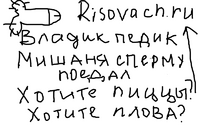 Risovach.ru
Владик педик
Мишаня сперму
поедал
Хотите пиццы?
Хотите плова?